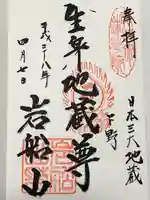 奉拝
日本三大地蔵
下野
生身地蔵尊
岩船山
平成二十八年
四月七日